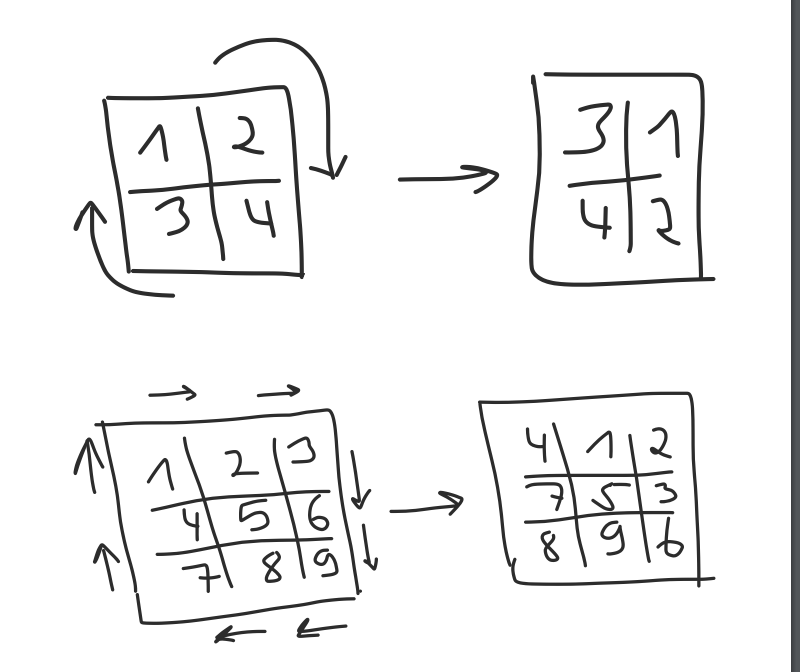 1 2
3 4
3 1
4 2
1 2 3
4 5 6
7 8 9
4 1 2
7 5 3
8 9 6